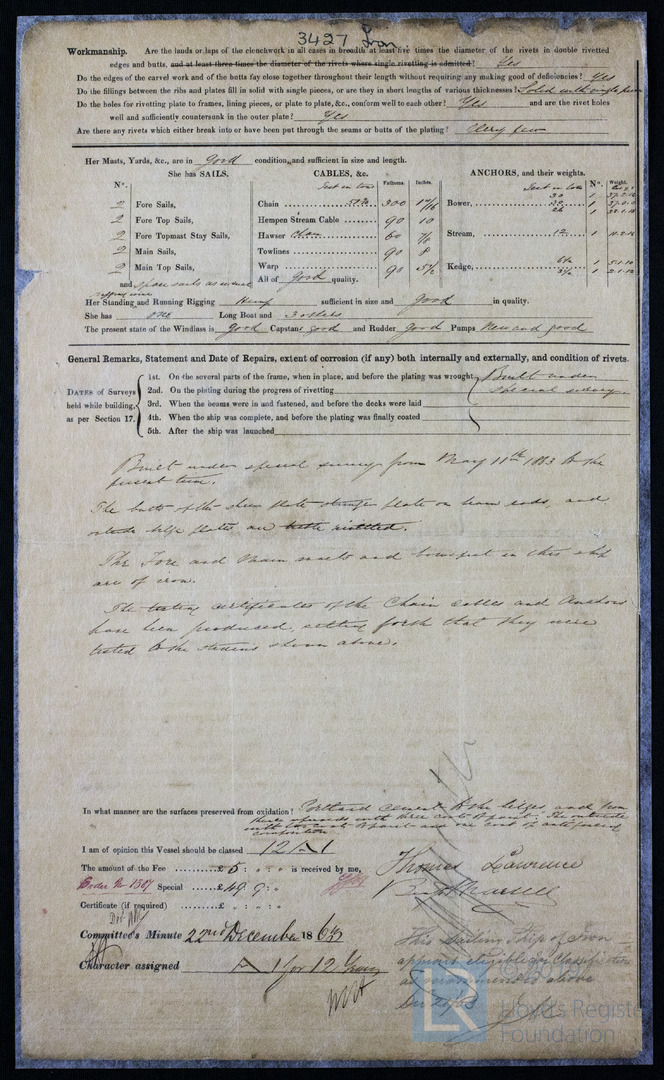 3427 Iron
Workmanship. Are the lands or laps of the clenchwork in all cases in breadth at least five times the diameter of the rivets in double rivetted
edges and butts, and at least three times the diameter of the rivets where single rivetting is admitted? Yes
Do the edges of the carvel work and of the butts fay close together throughout their length without requiring any making good of deficiencies? Yes
Do the fillings between the ribs and plates fill in solid with single pieces, or are they in short lengths of various thicknesses? Solid with single
Do the holes for rivetting plate to frames, lining pieces, or plate to plate, &c., conform well to each other? Yes and are the rivet holes
well and sufficiently countersunk in the outer plate? Yes
Are there any rivets which either break into or have been put through the seams or butts of the plating? Very few
Her Masts, Yards, &c., are in Good condition, and sufficient in size and length.
She has SAILS. CABLES, &c. ANCHORS, and their weights.
N°. Fathoms. Inches. N°. Weight.
2 Fore Sails, Chain 300 Bower, 1
2 Fore Top Sails, Hempen Stream Cable 90 10 1
2 Fore Topmast Stay Sails, Hawser Chain 60 Stream, 12 1
2 Main Sails, Towlines 90 8
2 Main Top Sails, Warp 90 5½ Kedge, 1
and spare sails as usual All of Good quality. 1
Her Standing and Running Rigging Hemp sufficient in size and Good in quality.
She has one Long Boat and 3 others
The present state of the Windlass is Good Capstan Good and Rudder Good Pumps New and good
General Remarks, Statement and Date of Repairs, extent of corrosion (if any) both internally and externally, and condition of rivets.
DATES of Surveys held while building, as per Section 17.
1st. On the several parts of the frame, when in place, and before the plating was wrought, Built under
2nd. On the plating during the progress of rivetting special survey
3rd. When the beams were in and fastened, and before the decks were laid
4th. When the ship was complete, and before the plating was finally coated
5th. After the ship was launched
Built under special survey from May 11th 1863 to the
present time.
The butts of the sheer plate stringer plate on beam ends, and
outside bilge plates are
The Fore and Main masts and bowsprit in this ship
are of iron.
The testing certificates of the Chain cables and Anchors
have been produced, setting forth that they were
tested to the strains shown above.
In what manner are the surfaces preserved from oxidation? Portland cement to the bilges and from
there upwards with three coats of paint. The outside
with two coats of paint and one coat of antifouling
composition.
I am of opinion this Vessel should be classed 12 A 1
The amount of the Fee £ 5 : " : " is received by me, Thomas Lawrence
Order No 1307 Special £ 49 : 9 : "
Certificate (if required) £ 0 : " : "
Committee's Minute 22nd December 1863
This Sailing Ship of Iron
Character assigned A 1 for 12 Years
appears eligible for Classification
as recommended above
Lloyd's Register
Foundation
LR